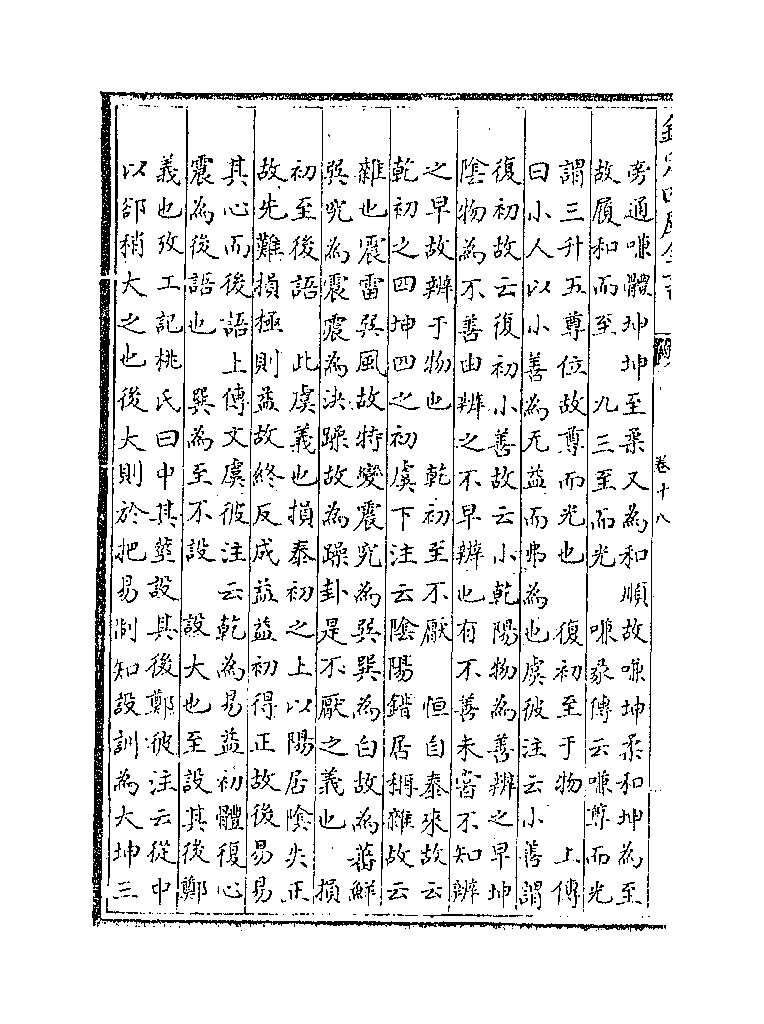 欽定四庫全書
卷十八
旁通嗛體坤坤至柔又為和順故嗛坤柔和坤為至
故履和而至　九三至而光　嗛彖傳云嗛尊而光
謂三升五尊位故尊而光也　復初至于物　上傳
曰小人以小善為无益而弗為也虞彼注云小善謂
復初故云復初小善故云小乾陽物為善辨之早坤
陰物為不善由辨之不早辨也有不善未嘗不知辨
之早故辨于物也　乾初至不厭　恒自泰來故云
乾初之四坤四之初虞下注云陰陽錯居稱雜故云
雜也震雷巽風故特變震究為巽巽為白故為蕃鮮
巽究為震震為決躁故為躁卦是不厭之義也　損
初至後語　此虞義也損泰初之上以陽居陰失正
故先難損極則益故終反成益益初得正故後易易
其心而後語上傳文虞彼注云乾為易益初體復心
震為後語也　巽為至不設　設大也至設其後鄭
義也攷工記桃氏曰中其莖設其後鄭彼注云從中
以郤稍大之也後大則於把易制知設訓為大坤三